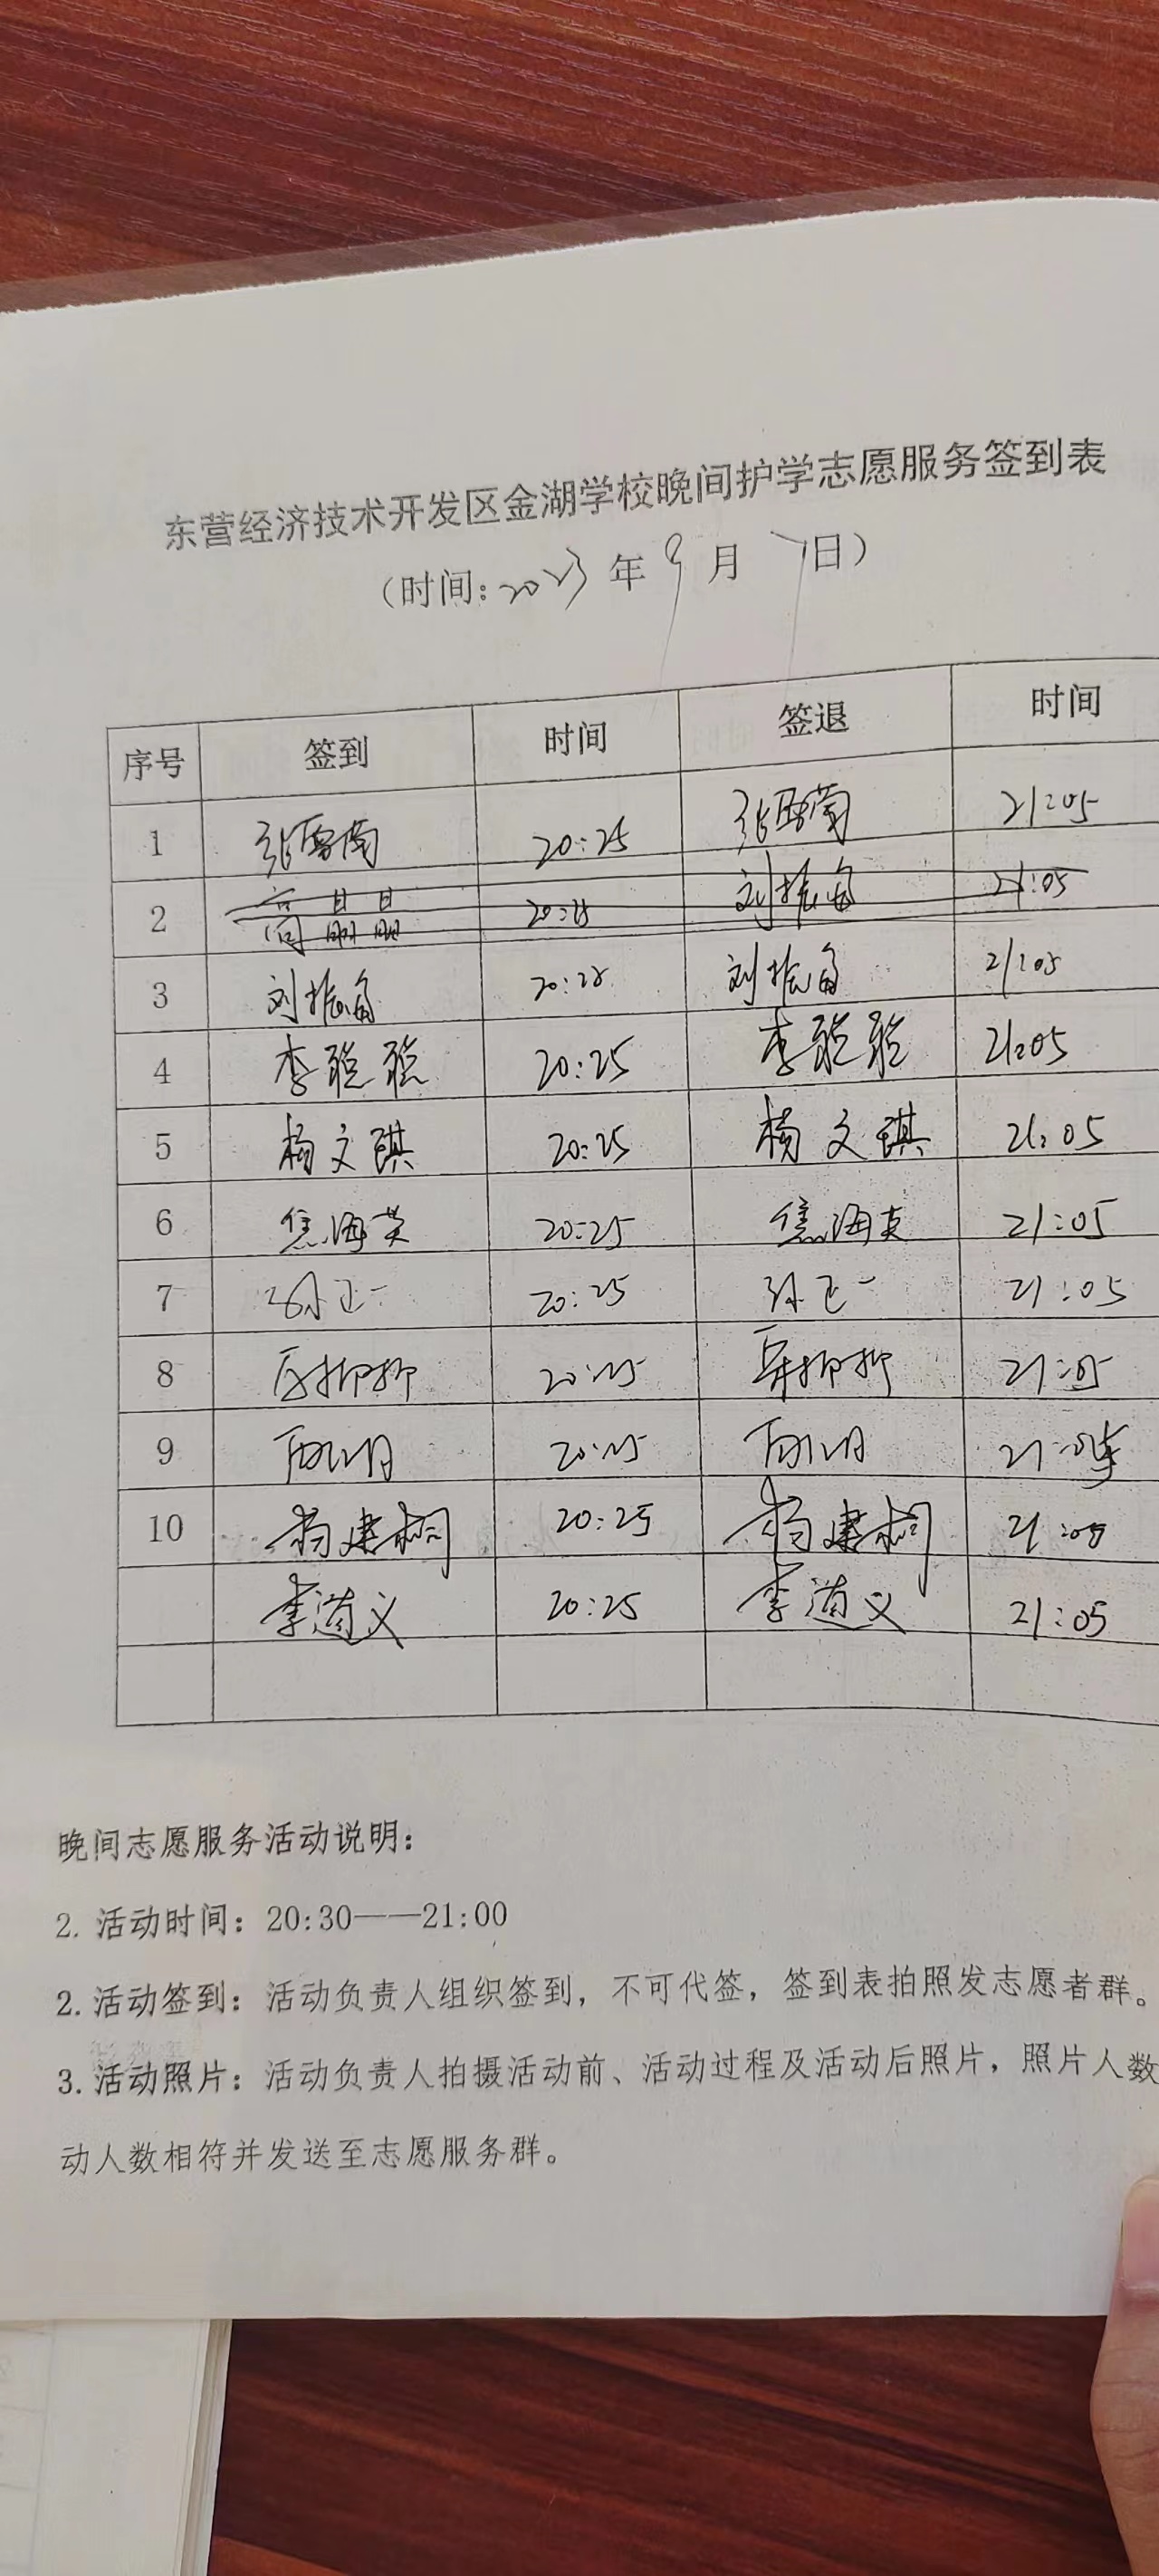 东营经济技术开发区金湖学校晚间护学志愿服务签到表
(时间: 2023年9月7日)
序号 签到 时间 签退 时间
1 张雪菊 20:25 张雪菊 21:05
2 高晶晶 20:25 刘振 21:05
3 刘振 20:25 刘振 21:05
4 李聪聪 20:25 李聪聪 21:05
5 杨文琪 20:25 杨文琪 21:05
6 焦海英 20:25 焦海英 21:05
7 孙正一 20:25 孙正一 21:05
8 20:25 21:05
9 20:25 21:05
10 杨建桐 20:25 杨建桐 21:05
李道义 20:25 李道义 21:05
晚间志愿服务活动说明:
2. 活动时间: 20:30——21:00
2. 活动签到: 活动负责人组织签到, 不可代签, 签到表拍照发志愿者群。
3. 活动照片: 活动负责人拍摄活动前、活动过程及活动后照片, 照片人数
动人数相符并发送至志愿服务群。